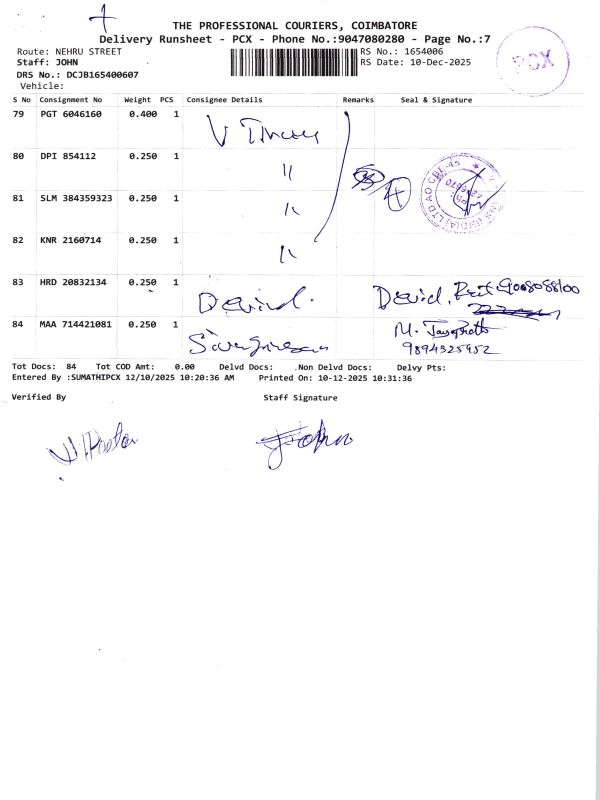 THE PROFESSIONAL COURIERS, COIMBATORE
Delivery Runsheet - PCX - Phone No.:9047080280 - Page No.:7
Route: NEHRU STREET
RS No.: 1654006
Staff: JOHN
RS Date: 10-Dec-2025
DRS No.: DCJB165400607
Vehicle:
PCX
S No Consignment No Weight PCS Consignee Details Remarks Seal & Signature
79 PGT 6046160 0.400 1
80 DPI 854112 0.250 1 "
81 SLM 384359323 0.250 1 "
82 KNR 2160714 0.250 1 "
83 HRD 20832134 0.250 1 David. David.
84 MAA 714421081 0.250 1 M.
9894325952
Tot Docs: 84 Tot COD Amt: 0.00 Delvd Docs: Non Delvd Docs: Delvy Pts:
Entered By :SUMATHIPCX 12/10/2025 10:20:36 AM Printed On: 10-12-2025 10:31:36
Verified By Staff Signature
John